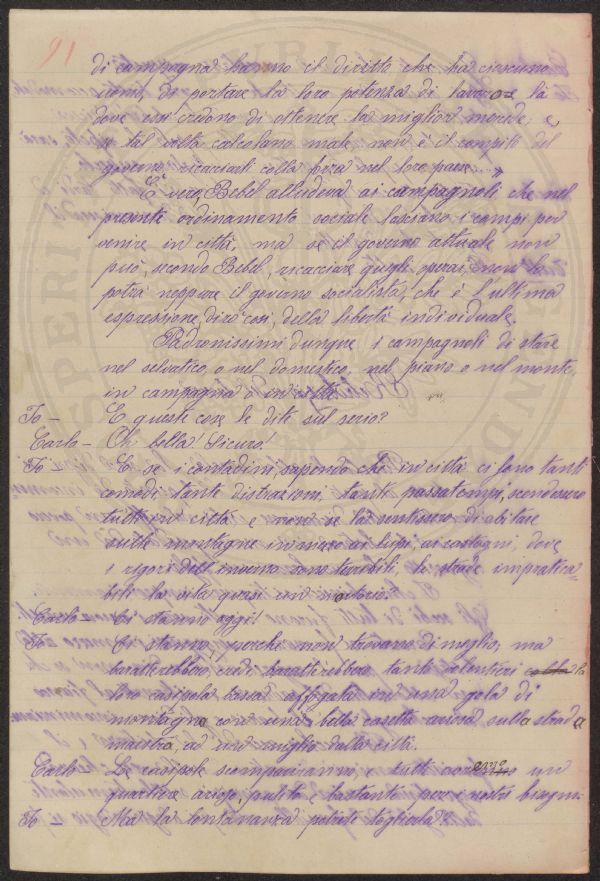 91
di campagna hanno il diritto che ha ciascuno
uomo, di portare la loro potenza di lavoro là
dove essi credono di ottenere la miglior mercede, e,
se tal volta calcolano male, non è il compito del
governo, ricacciarli colla forza nel loro paese. „
È vero, Bebel alludeva ai campagnoli che nel
presente ordinamento sociale lasciano i campi per
venire in città, ma se il governo attuale non
può, secondo Bebel, ricacciare quegli operai, non lo
potrà neppure il governo socialista, che è l'ultima
espressione, dirò così, della libertà individuale.
Padronissimi dunque i campagnoli di stare
nel selvatico, o nel domestico, nel piano o nel monte,
in campagna o in città.
Io – E queste cose le dite sul serio?
Carlo – Oh bella! Sicuro!
Io – E se i contadini, sapendo che in città ci sono tanti
comodi, tante distrazioni, tanti passatempi, scendessero
tutti in città e non se la sentissero di abitare
sulle montagne in mezzo ai lupi, ai castagni, dove
i rigori dell'inverno sono terribili, le strade impratica-
bili la vita quasi un
Carlo – Ci stanno oggi!
Io – Ci stanno, perchè non trovano di meglio, ma
baratterebbero, vedi baratterebbero tanto volentieri la
loro casipola bassa affogata in una gola di
montagna con una bella casetta ariosa sulla strada
maestra, ad un miglio dalla città.
Carlo – Le casipole scompariranno, e tutti avremo un
quartiere arioso, pulito e bastante per i nostri bisogni.
Io – Ma la lontananza potrete toglierla?